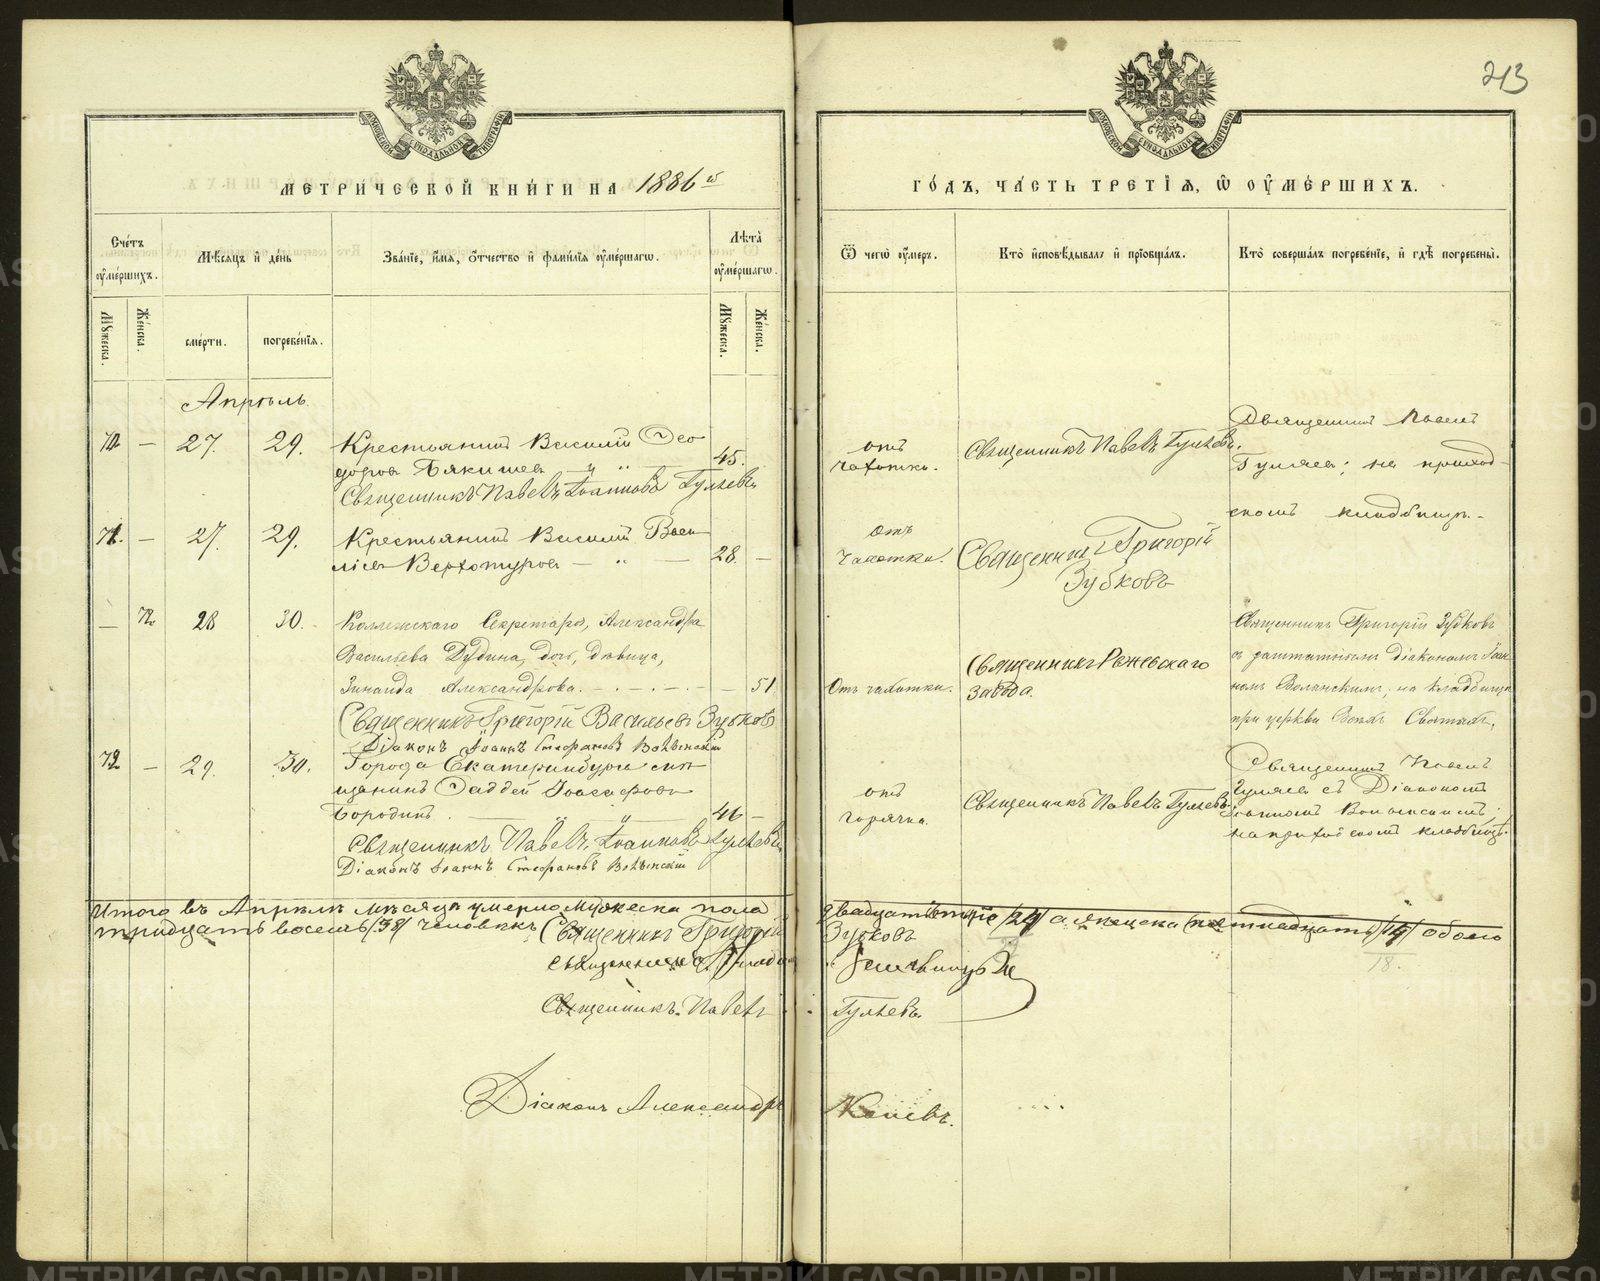 213
МЕТРИЧЕСКОЙ КНИГИ НА 1886 й
ГОДЪ, ЧАСТЬ ТРЕТІЯ, Ѿ ОУМЕРШИХЪ.
Счетъ оумершихъ.
Мѣсяцъ и день
Званіе, имя, отчество и фамилія оумершагѡ.
Лѣта оумершагѡ.
Ѿ чегѡ оумеръ.
Кто исповѣдывалъ и пріобщалъ.
Кто совершалъ погребеніе, и гдѣ погребены.
Мужеска.
Женска.
смерти.
погребенія.
Мужеска.
Женска.
Апрѣль
— 27. 29. Крестьянинъ Василій Ѳео
доровъ Бякишевъ 45.
Священникъ Павелъ Іоанновъ Гуляевъ
отъ
чахотки.
Священникъ Павелъ Гуляевъ.
Священникъ Павелъ
Гуляевъ; на приход-
скомъ кладбищѣ.
— 27. 29. Крестьянинъ Василій Васи
ліевъ Верхотуровъ — " — 28. —
отъ
чахотки.
Священникъ Григорій
Зубковъ
— 28 30. Коллежскаго Секретаря, Александра
Васильева Дудина, дочь, дѣвица,
Зинаида Александрова. — 51
Священникъ Григорій Васильевъ Зубковъ
Діаконъ Іоаннъ Стефановъ Волынскій
Отъ чахотки.
Священникъ Режевскаго
Завода.
Священникъ Григорій Зубковъ
съ заштатнымъ діакономъ Іоан
номъ Волынскимъ, на кладбищѣ
при церкви Всѣхъ Святыхъ.
— 29. 30. Города Екатеринбурга мѣ
щанинъ Фаддей Іоасафовъ
Бородинъ 46 —
Священникъ Павелъ Іоанновъ Гуляевъ
Діаконъ Іоаннъ Стефановъ Волынскій
отъ
горячки.
Священникъ Павелъ Гуляевъ
Священникъ Павелъ
Гуляевъ съ Діакономъ
Іоанномъ Волынскимъ;
на приходскомъ кладбищѣ.
Итого въ Апрѣлѣ мѣсяцѣ умерло мужеска пола двадцать /24/ а женска /14/ обоего
тридцать восемь /38/ человѣкъ Священникъ Григорій Зубковъ
18.
Священникъ
Священникъ Павелъ Гуляевъ.
Діаконъ Александръ
METRIKI.GASO-URAL.RU